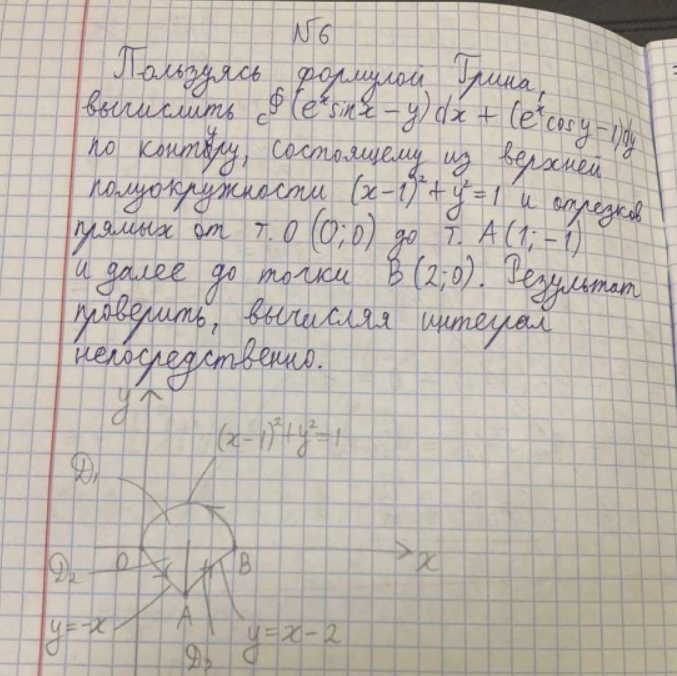 №6
Пользуясь формулой Грина,
вычислить c∮(eˣsinx-y)dx+(eˣcosy-1)dy
по контуру, состоящему из верхней
полуокружности (x-1)²+y²=1 и отрезков
прямых от т. О (0;0) до т. А(1;-1)
и далее до точки В(2;0). Результат
проверить, вычисляя интеграл
непосредственно.
y
(x-1)²+y²=1
Д₁
О
В
x
Д₂
y=-x
А
y=x-2
Д₃